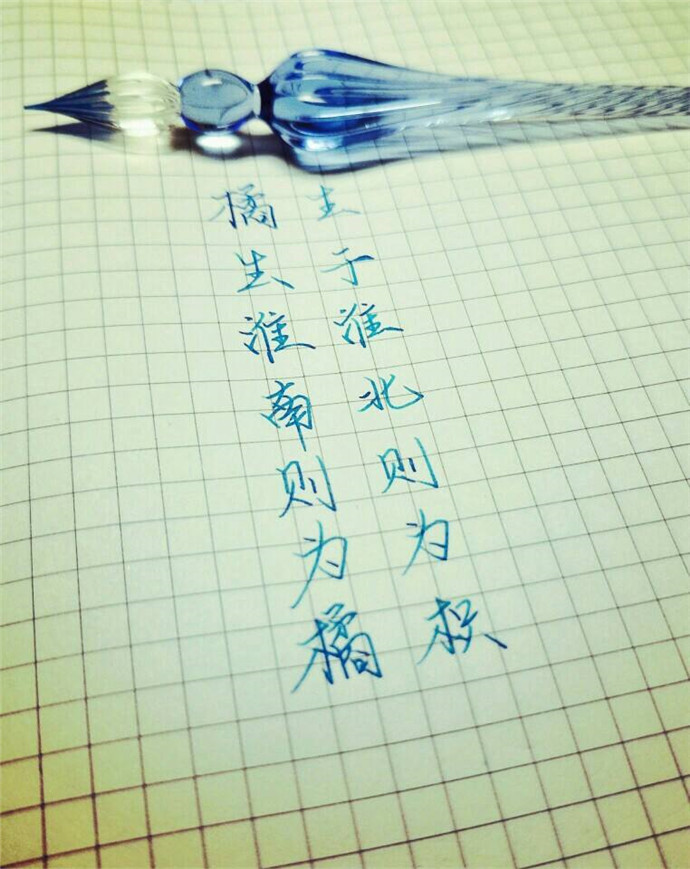 橘生淮南则为橘
生于淮北则为枳